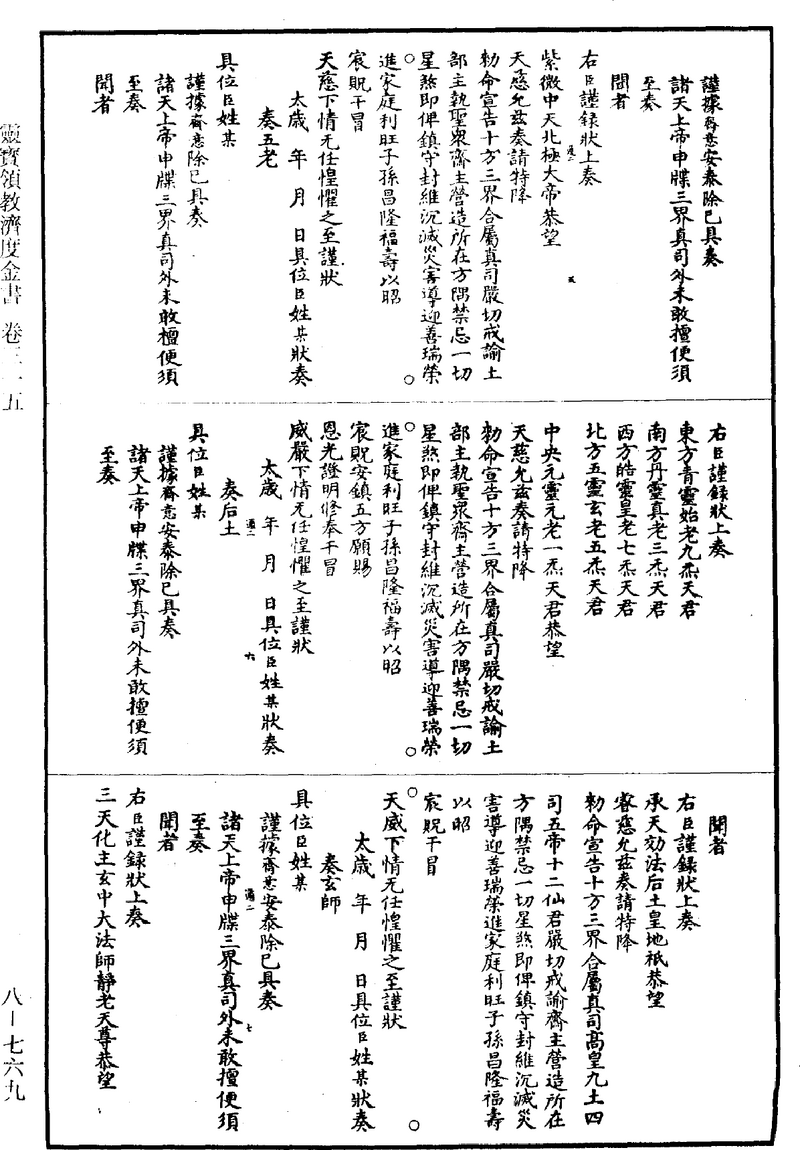 謹據齋意安泰除已具奏
諸天上帝申牒三界真司外未敢擅便須
至奏
聞者
右臣謹録狀上奏
紫微中天北極大帝恭望
天慈允兹奏請特降
勑命宣告十方三界合屬真司嚴切戒諭土
部主執聖衆齋主營造所在方隅禁忌一切
星煞即俾鎮守封維沉滅災害導迎善瑞榮
進家庭利旺子孫昌隆福壽以昭
宸貺干冒
天慈下情无任惶懼之至謹狀
太歲 年 月 日具位臣姓某狀奏
奏五老
具位臣姓某
謹據齋意除已具奏
諸天上帝申牒三界真司外未敢擅便須
至奏
聞者
右臣謹録狀上奏
東方青靈始老九炁天君
南方丹靈真老三炁天君
西方皓靈皇老七炁天君
北方五靈玄老五炁天君
中央元靈元老一炁天君恭望
天慈允兹奏請特降
勑命宣告十方三界合屬真司嚴切戒諭土
部主執聖衆齋主營造所在方隅禁忌一切
星煞即俾鎮守封維沉滅災害導迎善瑞榮
進家庭利旺子孫昌隆福壽以昭
宸貺安鎮五方願賜
恩光證明修奉干冒
威嚴下情无任惶懼之至謹狀
太歲 年 月 日具位臣姓某狀奏
奏后土
具位臣姓某
謹據齋意安泰除已具奏
諸天上帝申牒三界真司外未敢擅便須
至奏
聞者
右臣謹録狀上奏
承天効法后土皇地祇恭望
睿慈允兹奏請特降
勑命宣告十方三界合屬真司高皇九土四
司五帝十二仙君嚴切戒諭齋主營造所在
方隅禁忌一切星煞即俾鎮守封維沉滅災
害導迎善瑞榮進家庭利旺子孫昌隆福壽
以昭
宸貺干冒
天威下情无任惶懼之至謹狀
太歲 年 月 日具位臣姓某狀奏
奏玄師
具位臣姓某
謹據齋意安泰除已具奏
諸天上帝申牒三界真司外未敢擅便須
至奏
聞者
右臣謹録狀上奏
三天化主玄中大法師靜老天尊恭望
靈寶領教濟度金書 卷三一五
八—七六九